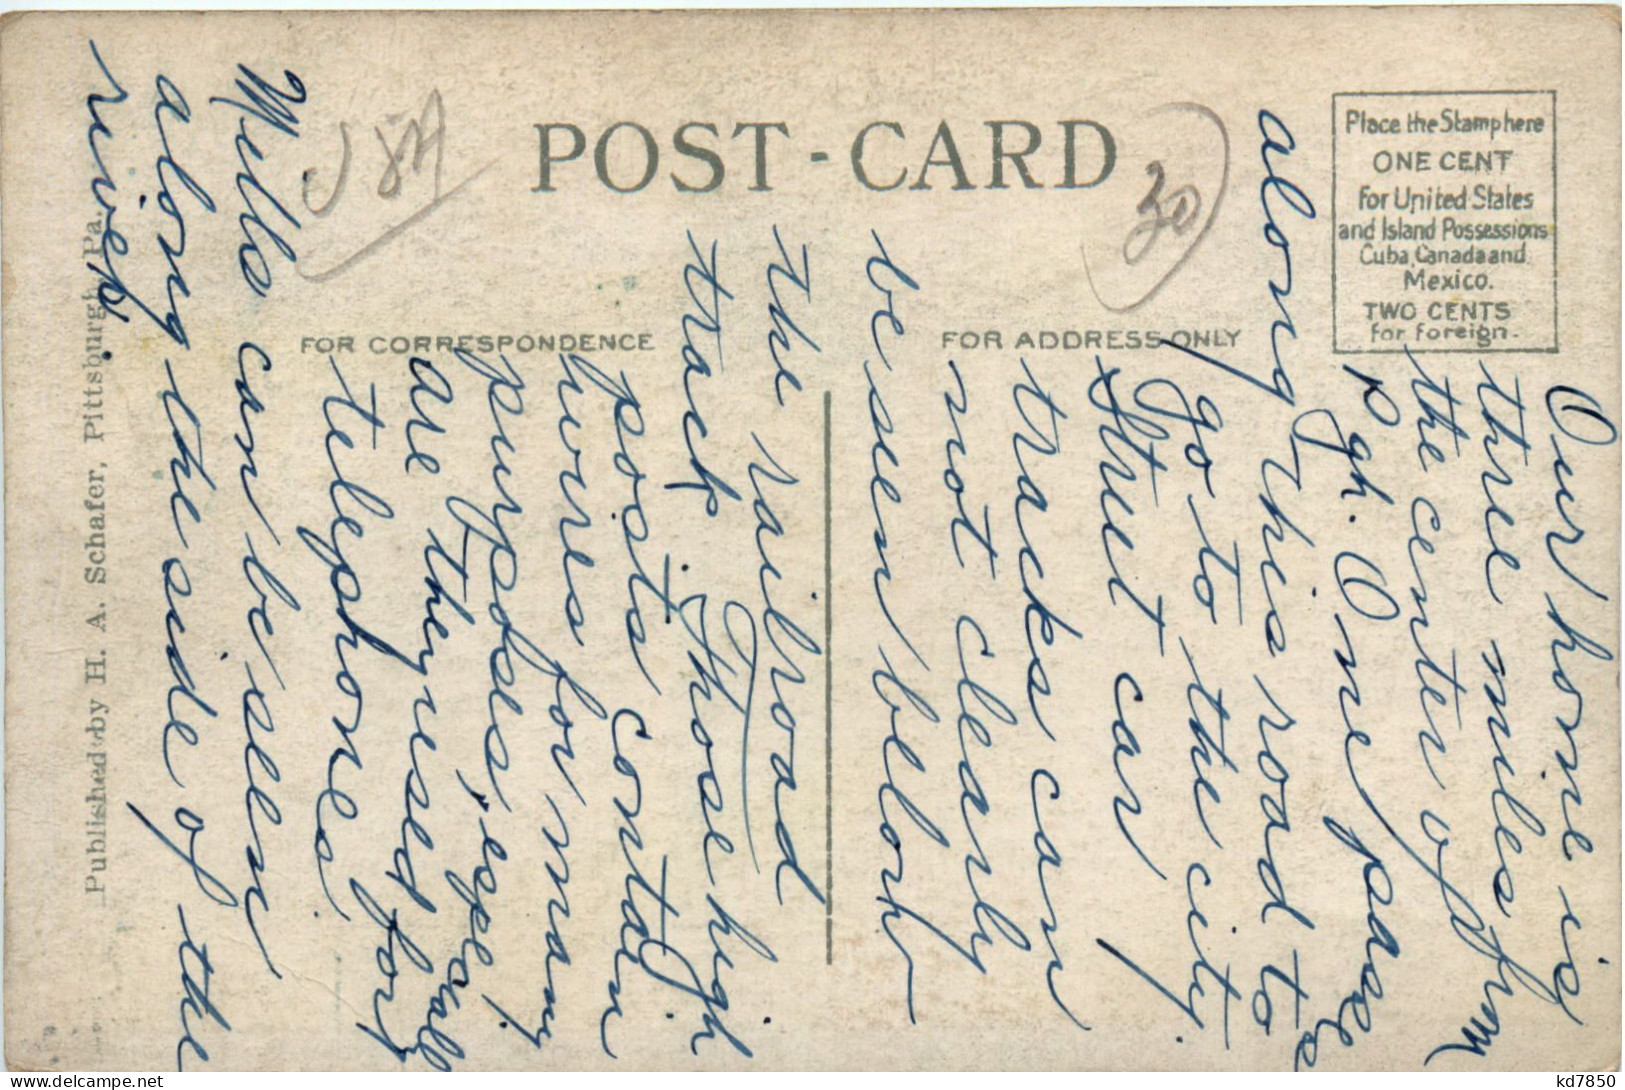 POST-CARD
FOR CORRESPONDENCE
FOR ADDRESS ONLY
Place the Stamp here
ONE CENT
For United States
and Island Possessions
Cuba, Canada and
Mexico.
TWO CENTS
for foreign.
Published by H. A. Schafer, Pittsburgh, Pa.
USA
30
Our home is
three miles from
the center of
Pgh. One passes
along this road to
go to the city.
Street car
tracks can
not clearly
be seen below
the railroad
track. Those high
posts contain
wires for many
purposes, especially
are they used for
telephones.
Mills can be seen
along the side of the
river.
kd7850